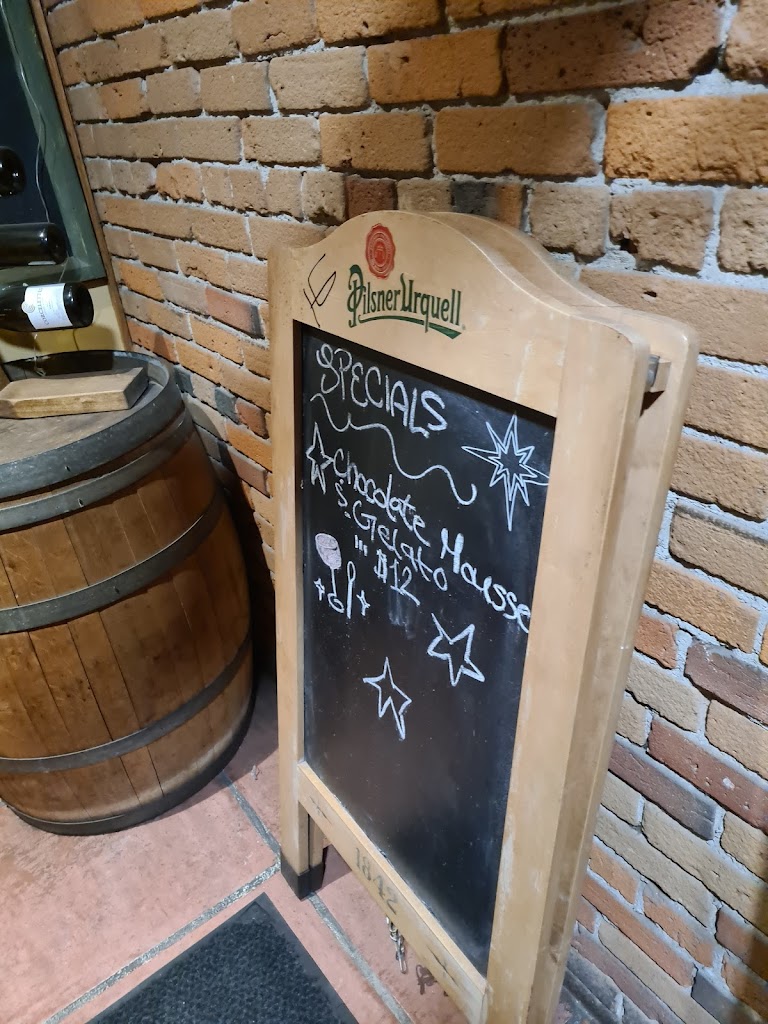 Pilsner Urquell
SPECIALS
Chocolate Mousse
& Gelato
$12
1842